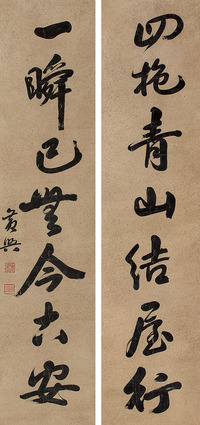 四抱青山結屋行
一瞬已無今古安
黃興